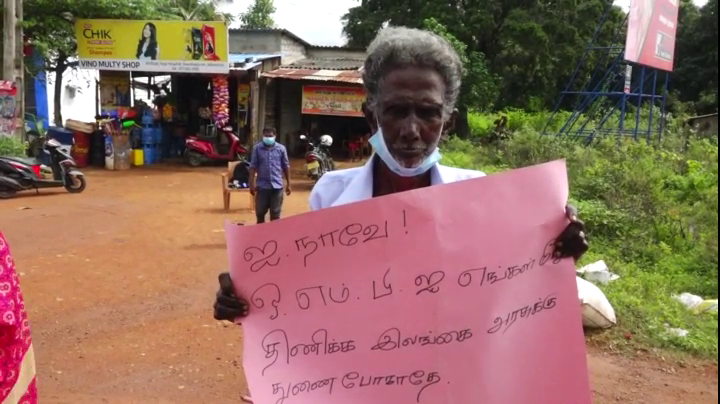 CHIK
Shampoo
VINO MULTY SHOP
ஐ.நாவே!
ஓ.எம்.பி.ஐ எங்கள்
திணிக்க இலங்கை அரசுக்கு
துணைபோகாதே.